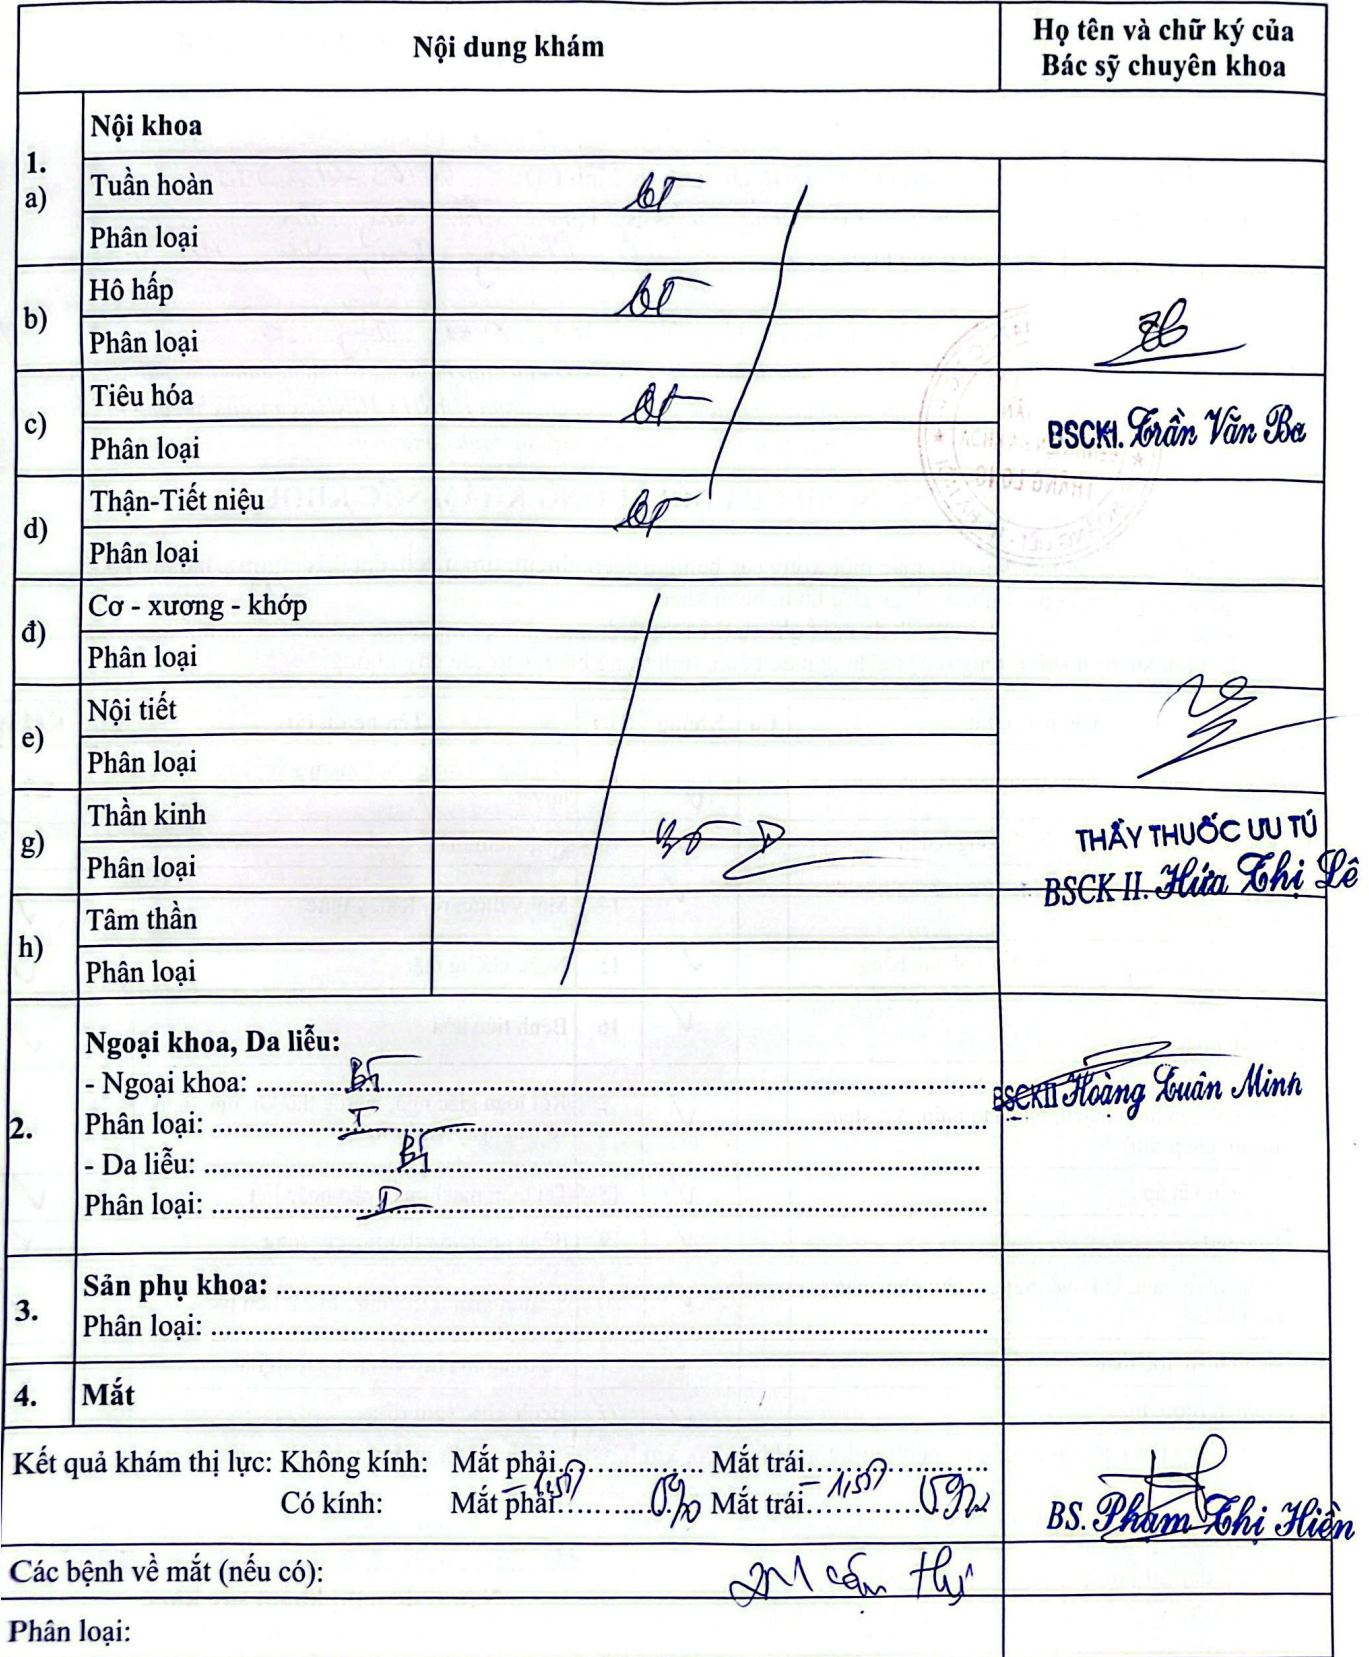 Nội dung khám
Họ tên và chữ ký của
Bác sỹ chuyên khoa
1.
Nội khoa
a)
Tuần hoàn
BT
Phân loại
b)
Hô hấp
BT
Phân loại
c)
Tiêu hóa
BT
Phân loại
BSCKI. Trần Văn Ba
d)
Thận-Tiết niệu
BT
Phân loại
đ)
Cơ - xương - khớp
Phân loại
e)
Nội tiết
Phân loại
g)
Thần kinh
Phân loại
THẦY THUỐC ƯU TÚ
BSCK II. Hứa Thị Lê
h)
Tâm thần
Phân loại
2.
Ngoại khoa, Da liễu:
- Ngoại khoa: BT
Phân loại: I
- Da liễu: BT
Phân loại: I
BSCKII Hoàng Xuân Minh
3.
Sản phụ khoa:
Phân loại:
4.
Mắt
Kết quả khám thị lực: Không kính: Mắt phải Mắt trái
Có kính: Mắt phải -1,50 Mắt trái -1,50
BS. Phạm Thị Hiền
Các bệnh về mắt (nếu có): 2M cận thị
Phân loại: